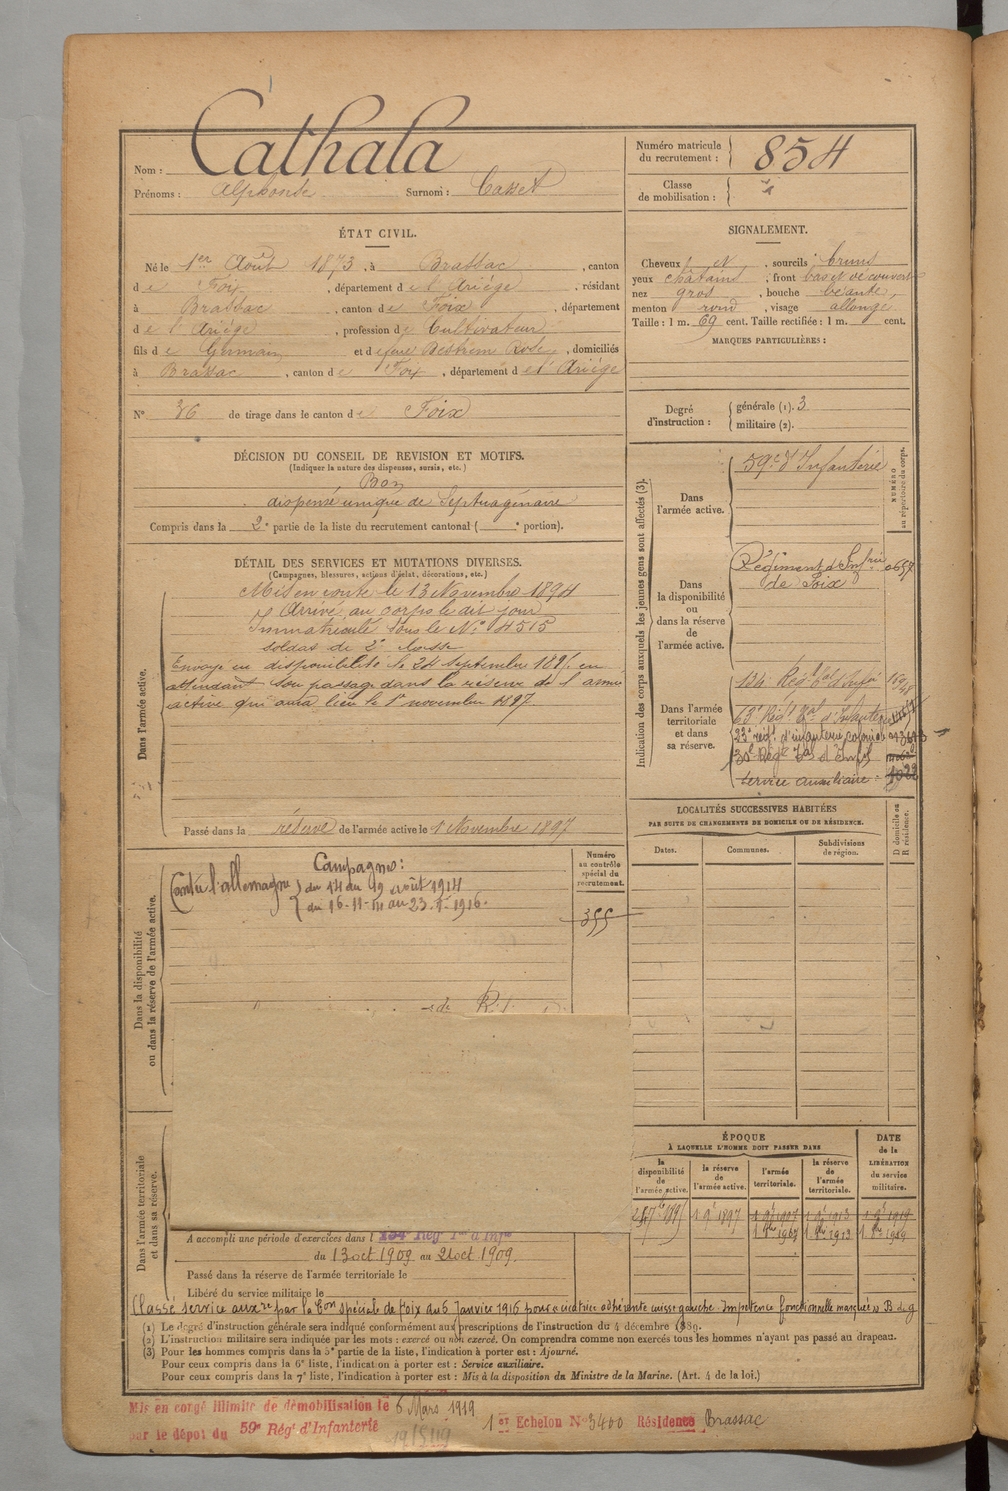 Nom : Cathala
Prénoms : Alphonse Surnom : Casset
Numéro matricule du recrutement : 854
Classe de mobilisation :
ÉTAT CIVIL.
Né le 1er Août 1873, à Brassac, canton
de Foix, département de l'Ariège, résidant
à Brassac, canton de Foix, département
de l'Ariège, profession de Cultivateur
fils de Germain et de Rose, domiciliés
à Brassac, canton de Foix, département de l'Ariège
N° 36 de tirage dans le canton de Foix
SIGNALEMENT.
Cheveux et, sourcils bruns
yeux châtains, front bas et découvert
nez gros, bouche béante,
menton rond, visage allongé
Taille : 1 m. 69 cent. Taille rectifiée : 1 m. cent.
MARQUES PARTICULIÈRES :
Degré d'instruction : générale (1). 3
militaire (2).
DÉCISION DU CONSEIL DE REVISION ET MOTIFS.
(Indiquer la nature des dispenses, sursis, etc.)
Bon
dispensé unique de Septuagénaire
Compris dans la 2e partie de la liste du recrutement cantonal ( e portion).
DÉTAIL DES SERVICES ET MUTATIONS DIVERSES.
(Campagnes, blessures, actions d'éclat, décorations, etc.)
Dans l'armée active.
Mis en route le 13 Novembre 1894
Arrivé au corps le dit jour
Immatriculé sous le N° 4515
soldat de 2e classe
Envoyé en disponibilité le 24 septembre 189 en
attendant son passage dans la réserve de l'armée
active qui aura lieu le 1er novembre 1897.
Passé dans la réserve de l'armée active le 1 Novembre 1897
Indication des corps auxquels les jeunes gens sont affectés (3).
NUMÉRO au répertoire du corps.
Dans l'armée active.
59e d'Infanterie
Dans la disponibilité ou dans la réserve de l'armée active.
Régiment d'Infrie
de Foix
Dans l'armée territoriale et dans sa réserve.
134 Régt tal d'Infie
63e Régt tal d'Infanterie
23e régt d'infanterie coloniale
Régt tal d'Inf
service auxiliaire
LOCALITÉS SUCCESSIVES HABITÉES
PAR SUITE DE CHANGEMENTS DE DOMICILE OU DE RÉSIDENCE.
Dates. Communes. Subdivisions de région. D domicile ou R résidence.
Dans la disponibilité ou dans la réserve de l'armée active.
Numéro au contrôle spécial du recrutement.
355
Campagnes :
Contre l'allemagne du 14 au 19 août 1914
du 16-11-14 au 23-1-1916.
Dans l'armée territoriale et dans sa réserve.
A accompli une période d'exercices dans l 134e Rég Tal d'Infie
du 13 oct 1909 au 21 oct 1909.
Passé dans la réserve de l'armée territoriale le
Libéré du service militaire le
ÉPOQUE
A LAQUELLE L'HOMME DOIT PASSER DANS
DATE de la LIBÉRATION du service militaire.
la disponibilité de l'armée active. la réserve de l'armée active. l'armée territoriale. la réserve de l'armée territoriale.
Classé service auxre par la Con spéciale de Foix du 6 Janvier 1916 pour cicatrice adhérente cuisse gauche. Impotence fonctionnelle marchée
(1) Le degré d'instruction générale sera indiqué conformément aux prescriptions de l'instruction du 4 décembre 1889.
(2) L'instruction militaire sera indiquée par les mots : exercé ou non exercé. On comprendra comme non exercés tous les hommes n'ayant pas passé au drapeau.
(3) Pour les hommes compris dans la 5e partie de la liste, l'indication à porter est : Ajourné.
Pour ceux compris dans la 6e liste, l'indication à porter est : Service auxiliaire.
Pour ceux compris dans la 7e liste, l'indication à porter est : Mis à la disposition du Ministre de la Marine. (Art. 4 de la loi.)
Mis en congé illimité de démobilisation le 6 Mars 1919 1er Echelon N° 3400 Résidence Brassac
par le dépôt du 59e Régt d'Infanterie